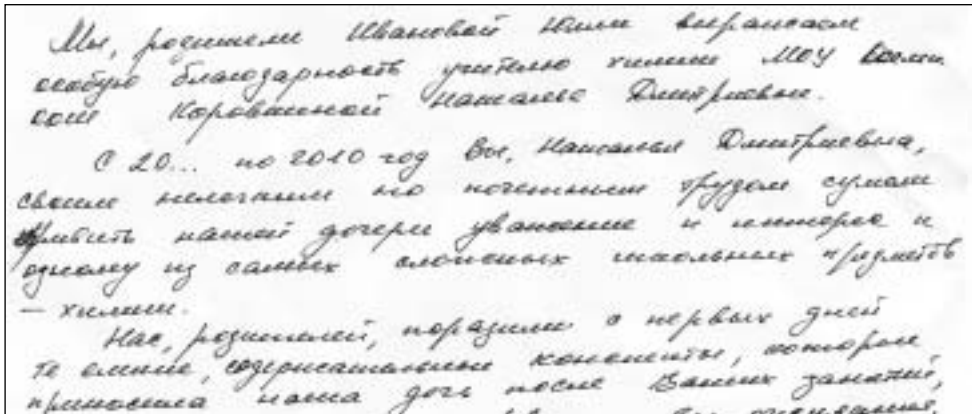 Мы, родители Ивановой Юлии выражаем
особую благодарность учителю химии МОУ
сош Коровкиной Наталье Дмитриевне.
С 20... по 2010 год Вы, Наталья Дмитриевна,
своим нелегким но почетным трудом сумели
привить нашей дочери уважение и интерес к
одному из самых сложных школьных предметов
– химии.
Нас, родителей, поразили с первых дней
те емкие, содержательные конспекты, которые
приносила наша дочь после Ваших занятий,